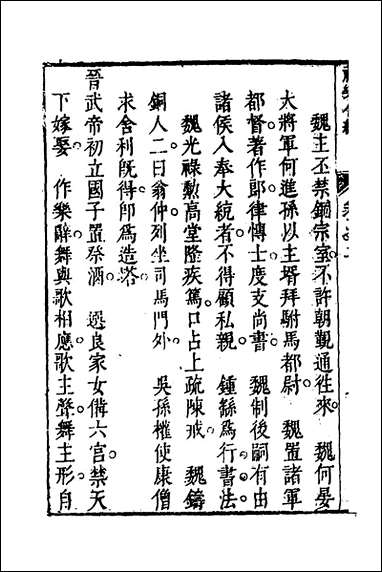 魏主丕禁錮宗室不許朝覲通往來。　魏何晏
大將軍何進孫以主壻拜駙馬都尉　魏置諸軍
都督著作郎律博士度支尚書　魏制後嗣有由
諸侯入奉大統者不得顧私親　鍾繇爲行書法。
魏光祿勲高堂隆疾篤口占上疏陳戒　魏鑄
銅人二曰翁仲列坐司馬門外　吳孫權使康僧
求舍利旣得卽爲造塔
晉武帝初立國子置祭酒　選良家女備六宮禁天
下嫁娶　作樂辭舞與歌相應歌主聲舞主形自